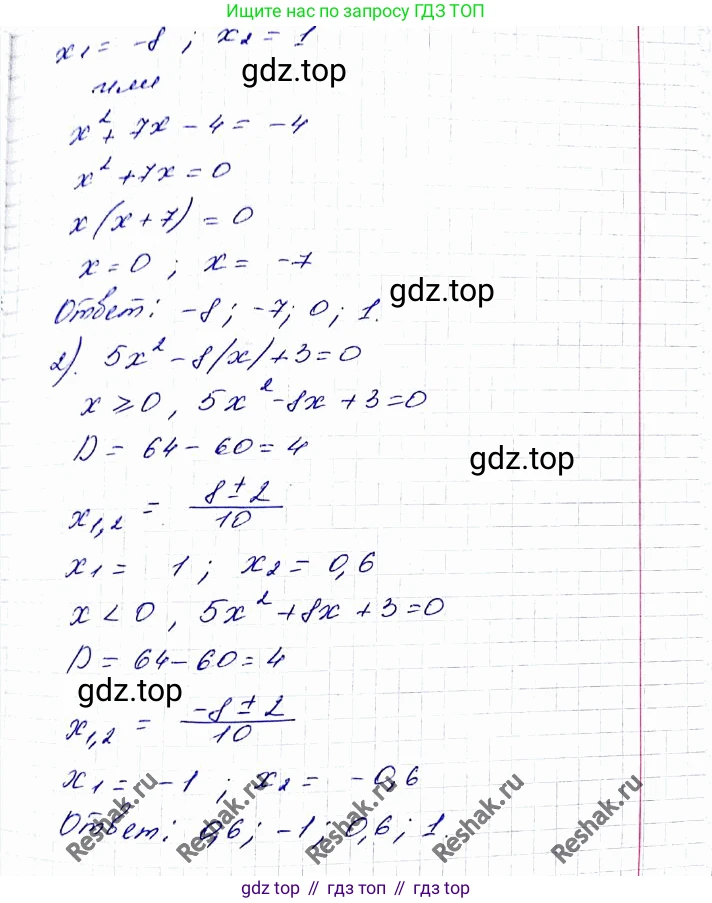 Ищите нас по запросу ГДЗ ТОП
x₁ = -8 ; x₂ = 1
gdz.top
или
x² + 7x - 4 = -4
x² + 7x = 0
x(x + 7) = 0
x = 0 ; x = -7
gdz.top
Ответ: -8; -7; 0; 1.
2). 5x² - 8|x| + 3 = 0
x ⩾ 0, 5x² - 8x + 3 = 0
D = 64 - 60 = 4
gdz.top
x₁,₂ = (8 ± 2)/10
x₁ = 1 ; x₂ = 0,6
x < 0, 5x² + 8x + 3 = 0
D = 64 - 60 = 4
gdz.top
x₁,₂ = (-8 ± 2)/10
x₁ = -1 ; x₂ = -0,6
Ответ: 0,6; -1; 0,6; 1.
Reshak.ru Reshak.ru Reshak.ru Reshak.ru Reshak.ru
gdz top // гдз топ // gdz top